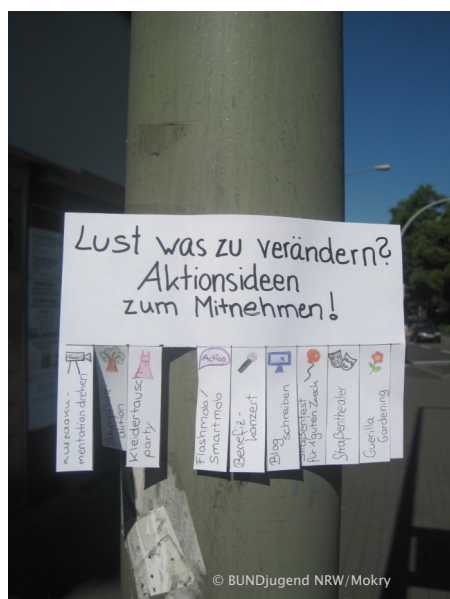 Lust was zu verändern?
Aktionsideen
zum Mitnehmen!
Kurzdoku-
mentation drehen
aktion
Kleidertausch
party
Action
Flashmob/
Smartmob
Benefiz-
konzert
Blog
schreiben
Straßenfest
für 1 guten Zweck
Straßentheater
Guerilla
Gardening
© BUNDjugend NRW/Mokry